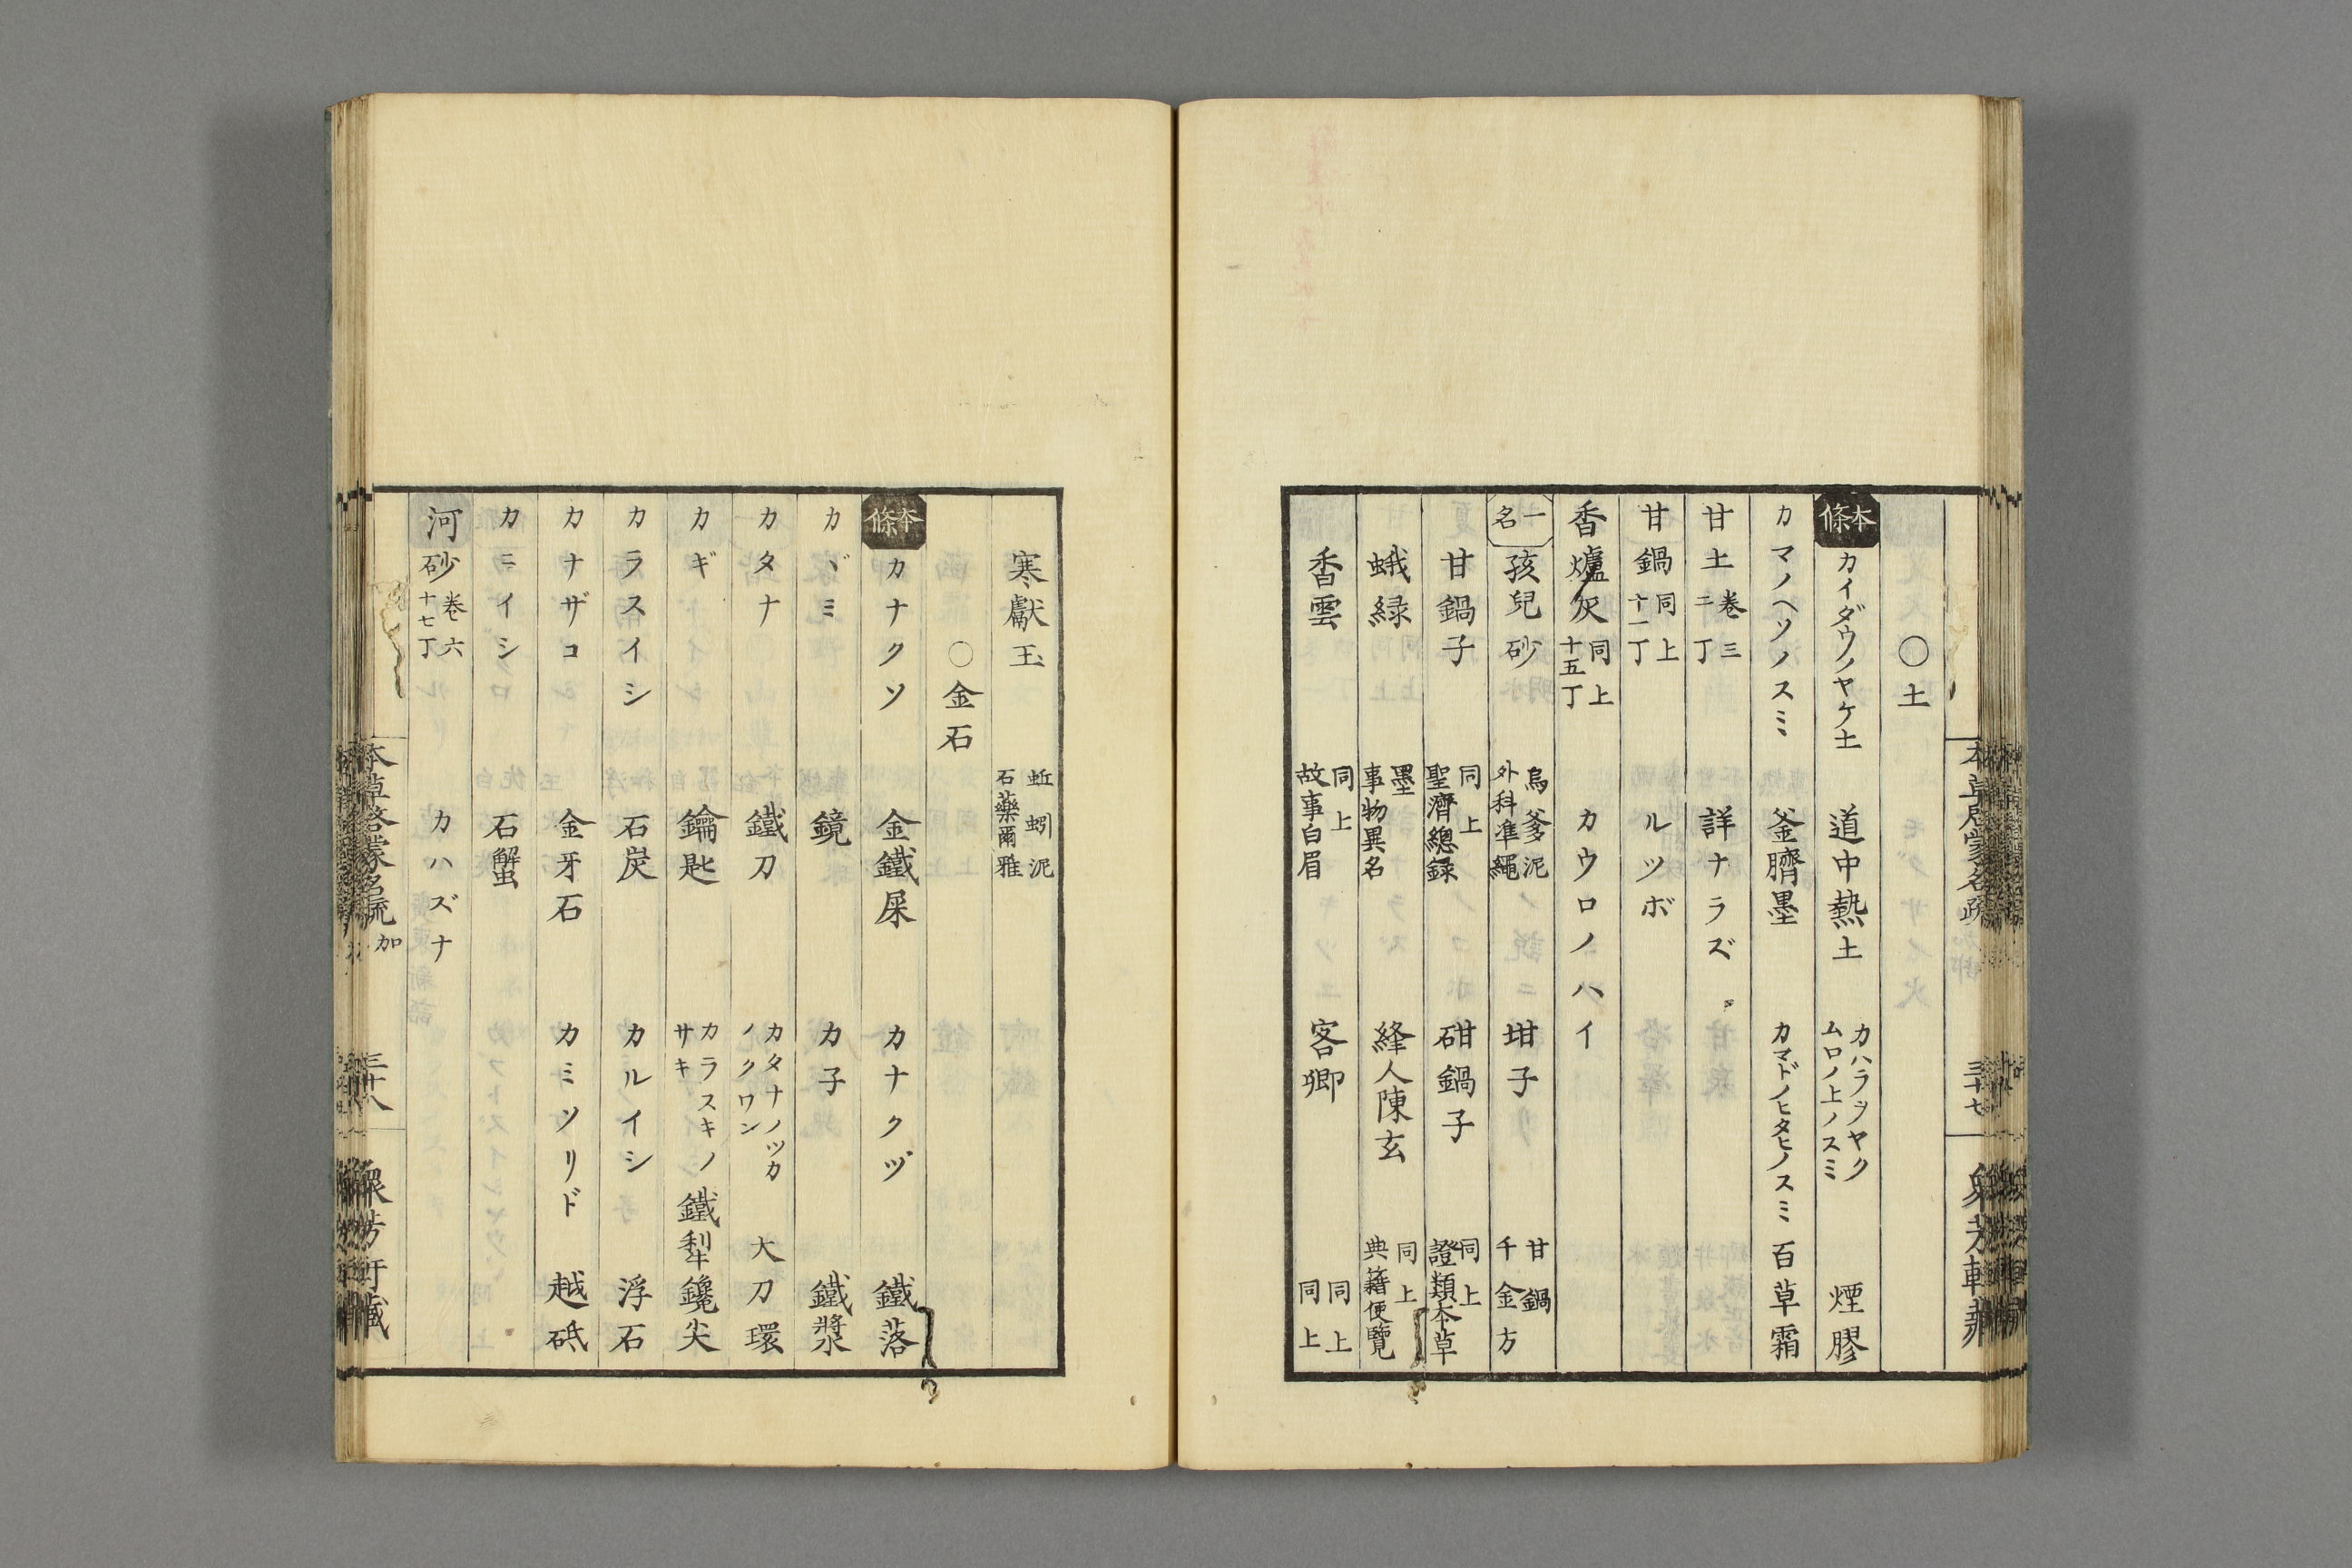 ○土
本條 カイダウノヤケ土 道中熱土 カハラヲヤク ムロノ上ノスミ 煙膠
カマノヘソノスミ 釜臍墨 カマドノヒタヒノスミ 百草霜
甘土 卷三 二丁 詳ナラズ
甘鍋 同上 十一丁 ルツボ
香爐灰 同上 十五丁 カウロノハイ
一名 孩兒砂 烏爹泥 外科準繩 坩子 甘鍋 千金方
甘鍋子 同上 聖濟總録 砠鍋子 同上 證類本草
蛾緑 墨 事物異名 絳人陳玄 同上 典籍便覽
香雲 同上 故事白眉 客卿 同上 同上
寒獻玉 蚯蚓泥 石藥爾雅
○金石
本條 カナクソ 金鐵屎 カナクヅ 鐵落
カヾミ 鏡 カ子 鐵漿
カタナ 鐵刀 カタナノツカノクワン 大刀環
カギ 鑰匙 カラスキノサキ 鐵犁鑱尖
カラスイシ 石炭 カルイシ 浮石
カナザコ 金牙石 カミソリド 越砥
カニイシ 石蟹
河砂 卷六 十七丁 カハズナ
本草啓蒙名疏 加 三十八 衆芳軒藏